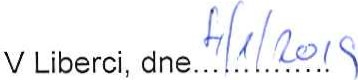 V Liberci, dne 7/1/2019